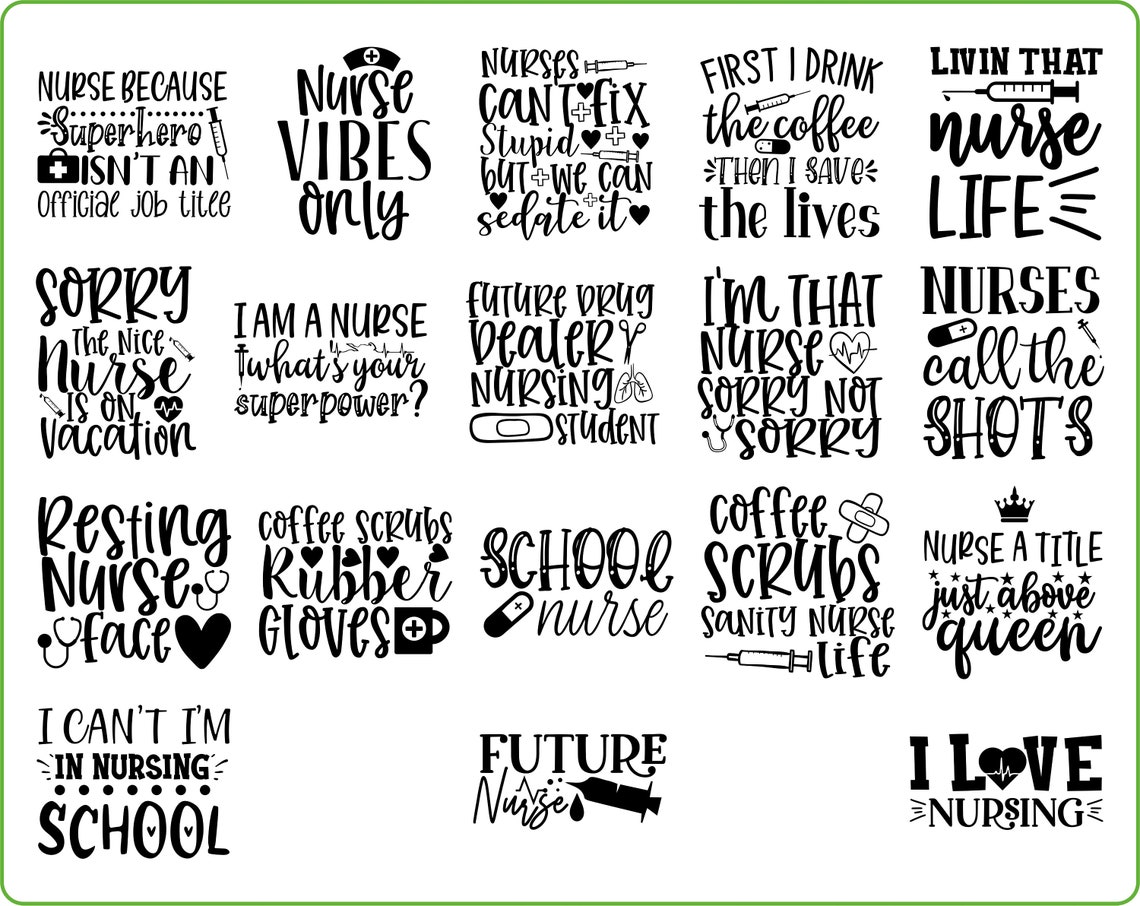 NURSE BECAUSE
Superhero
ISN'T AN
Official Job title
Nurse
VIBES
only
NURSES
CAN'T fix
Stupid
but we can
sedate it
FIRST I DRINK
the coffee
THEN I SAVE
the lives
LIVIN THAT
nurse
LIFE
SORRY
The Nice
Nurse
IS ON
Vacation
I AM A NURSE
what's your
superpower?
FUTURE DRUG
Dealer
NURSING
STUDENT
I'M THAT
NURSE
SORRY NOT
SORRY
NURSES
call the
SHOTS
Resting
Nurse
face
coffee SCRUbS
Rubber
GLOVES
SCHOOL
nurse
coffee
SCRUbS
SANITY NURSE
life
NURSE A TITLE
just above
queen
I CAN'T I'M
IN NURSING
SCHOOL
FUTURE
Nurse
I LOVE
NURSING